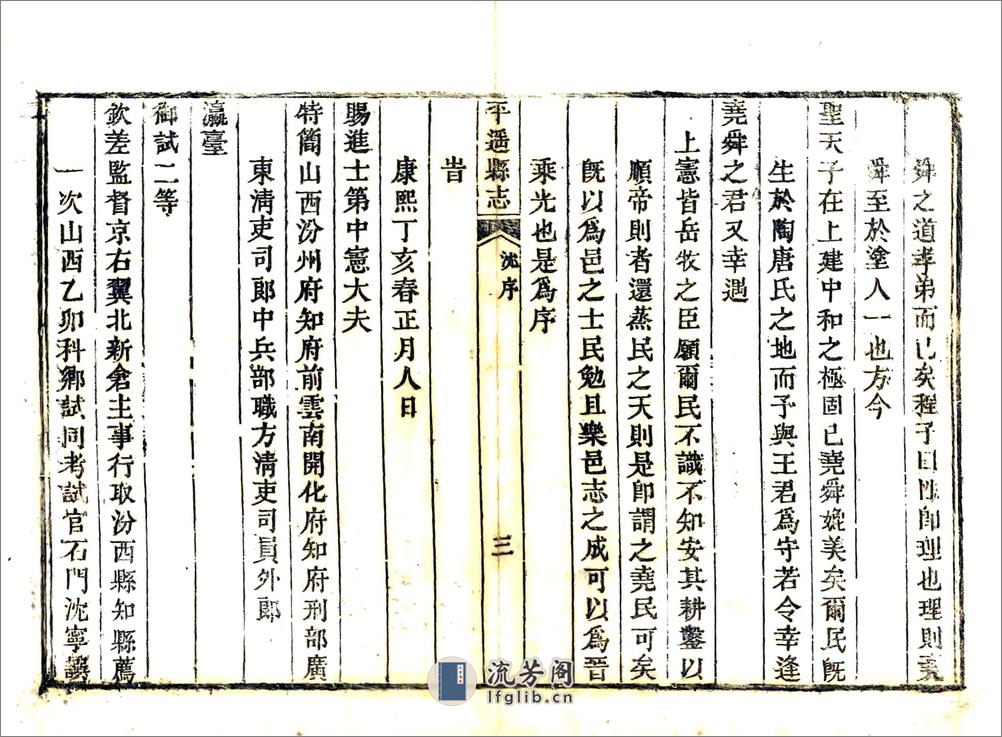 舜之道孝弟而已矣程子曰性即理也理則堯
舜至於塗人一也方今
聖天子在上建中和之極固已堯舜媲美矣爾民既
生於陶唐氏之地而予與王君為守若令幸逢
堯舜之君又幸遇
上憲皆岳牧之臣願爾民不識不知安其耕鑿以
順帝則者還蒸民之天則是卽謂之堯民可矣
旣以為邑之士民勉且樂邑志之成可以為晉
乘光也是為序
平遥縣志
沈序
三
旹
康熙丁亥春正月人日
賜進士第中憲大夫
特簡山西汾州府知府前雲南開化府知府刑部廣
東淸吏司郎中兵部職方淸吏司員外郎
瀛臺
御試二等
欽差監督京右翼北新倉主事行取汾西縣知縣薦
一次山西乙卯科鄉試同考試官石門沈寧
流芳阁
lfglib.cn